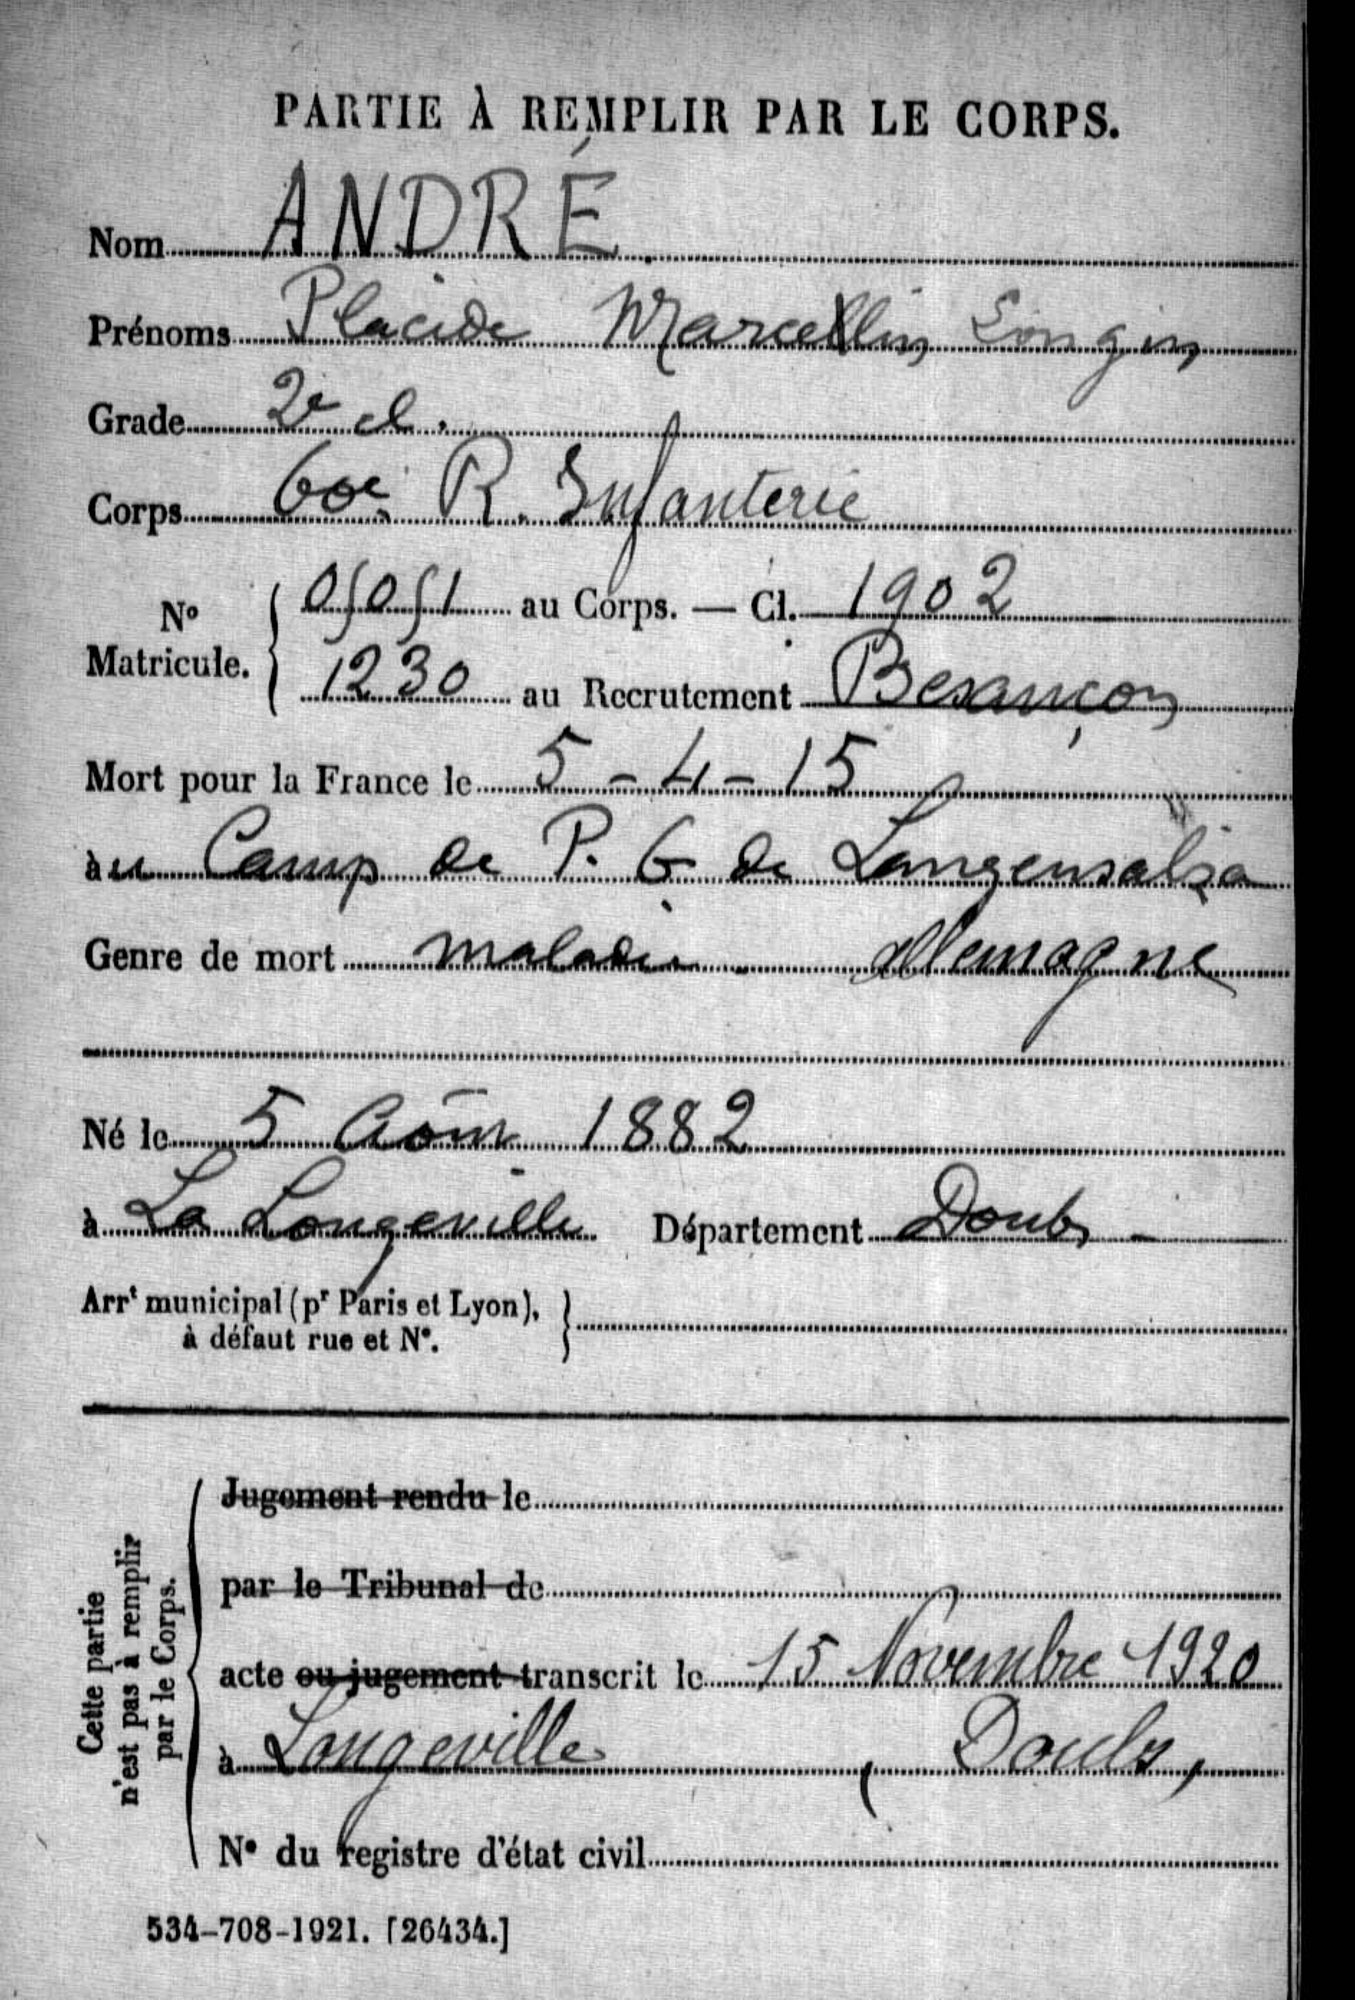 PARTIE À REMPLIR PAR LE CORPS.
Nom ANDRÉ
Prénoms Placide Marcellin Longin
Grade 2e cl.
Corps 60e R. Infanterie
No Matricule. { 05051 au Corps. — Cl. 1902
1230 au Recrutement Besançon
Mort pour la France le 5-4-15
au Camp de P. G de Langensalza
Genre de mort maladie Allemagne
Né le 5 Août 1882
à La Longeville Département Doubs
Arrt municipal (pr Paris et Lyon), à défaut rue et No. }
Cette partie n'est pas à remplir par le Corps.
Jugement rendu le
par le Tribunal de
acte ou jugement transcrit le 15 Novembre 1920
à Longeville (Doubs,
No du registre d'état civil
534-708-1921. [26434.]